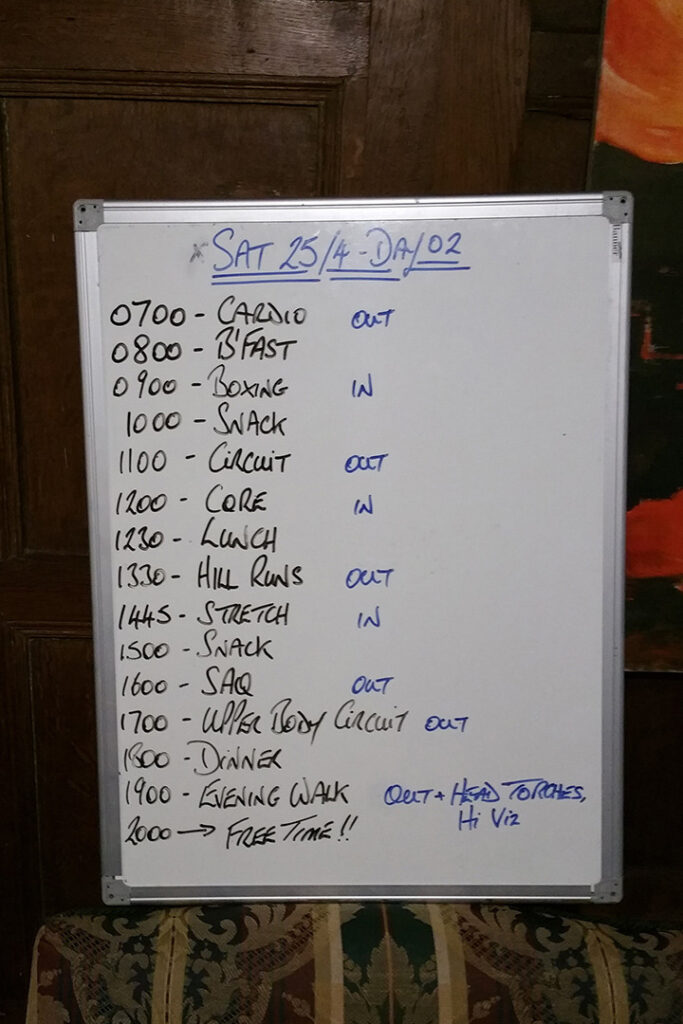 SAT 25/4 - DAY 02
0700 - CARDIO OUT
0800 - B'FAST
0900 - BOXING IN
1000 - SNACK
1100 - CIRCUIT OUT
1200 - CORE IN
1230 - LUNCH
1330 - HILL RUNS OUT
1445 - STRETCH IN
1500 - SNACK
1600 - SAQ OUT
1700 - UPPER BODY CIRCUIT OUT
1800 - DINNER
1900 - EVENING WALK OUT + HEAD TORCHES,
Hi Viz
2000 → FREE TIME!!